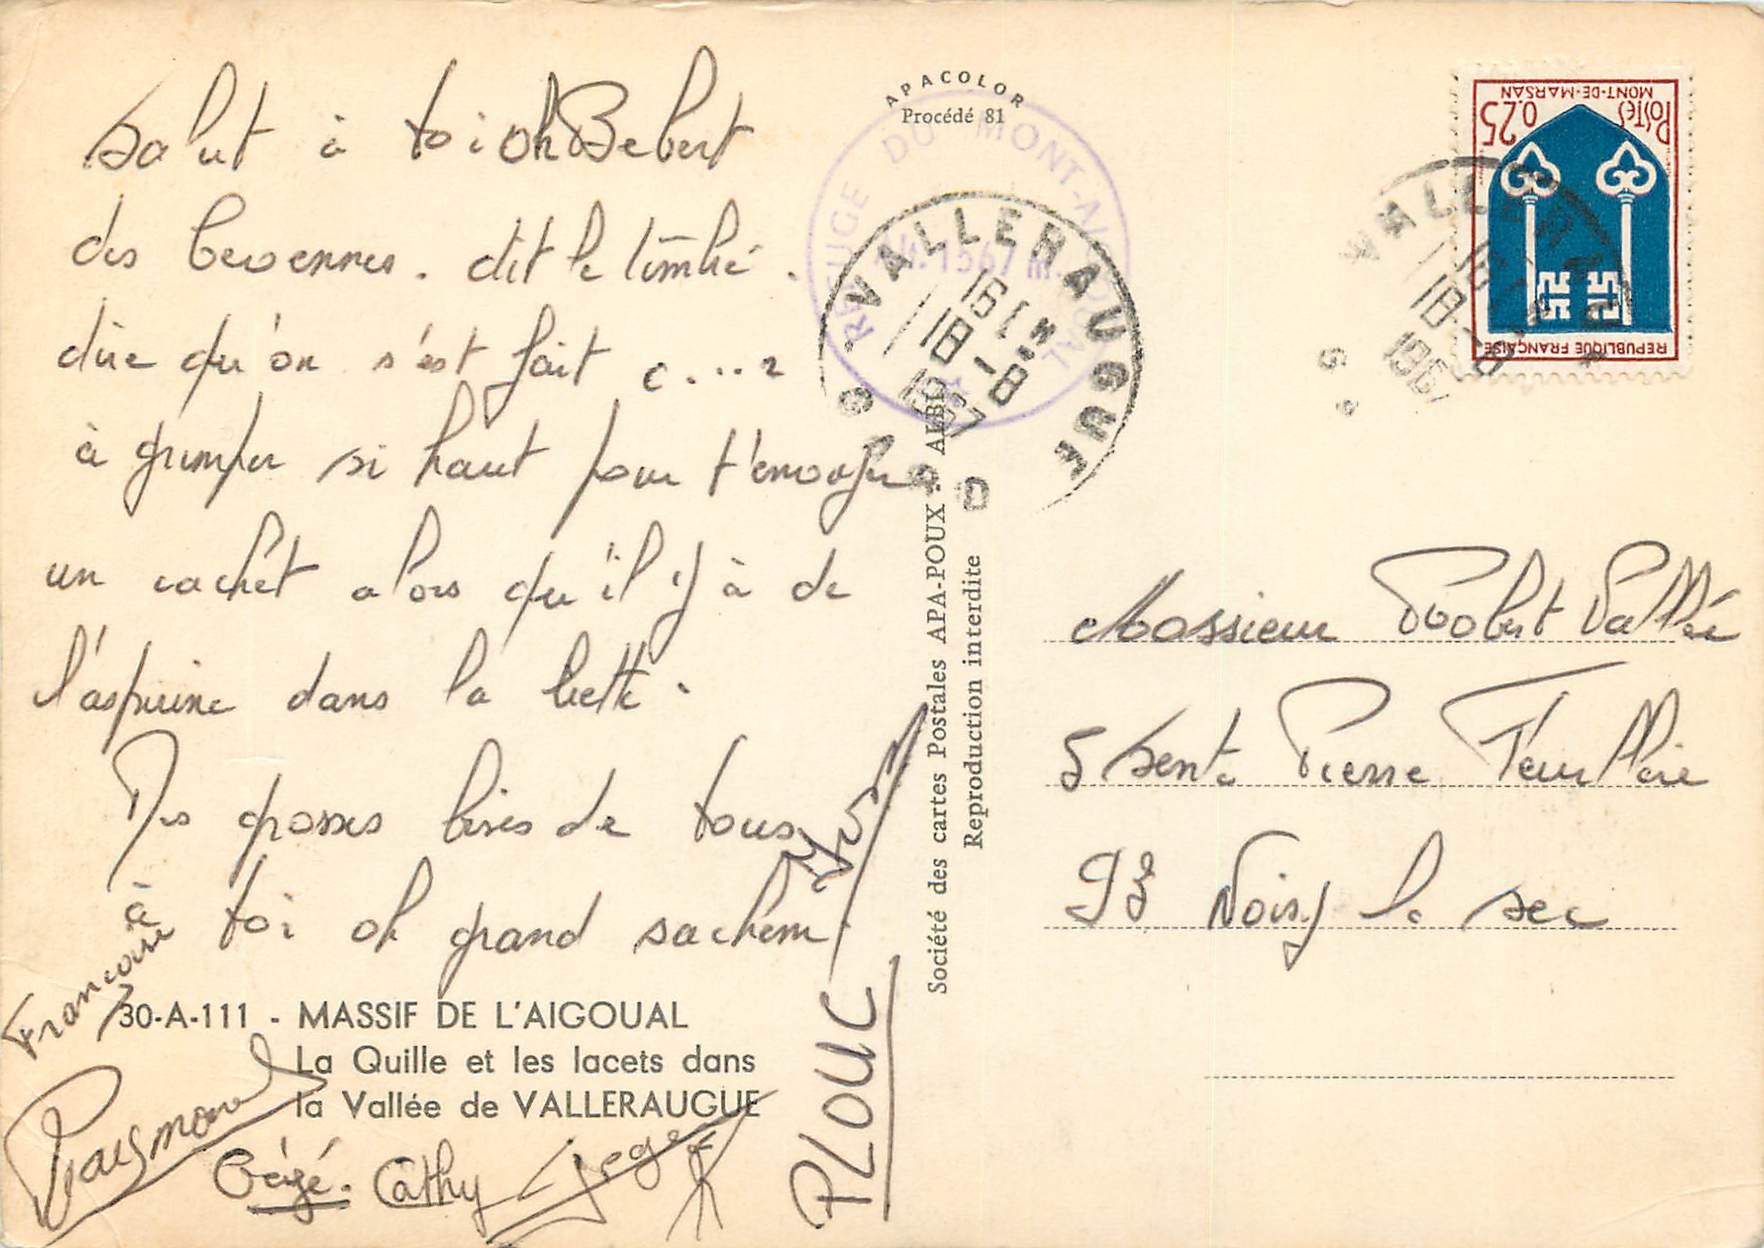 Salut à toi oh Bebert
des Cevennes. dit le timbré.
dire qu'on s'est fait c....r
à grimper si haut pour t'envoyer
un cachet alors qu'il y à de
l'aspirine dans la
Des grosses bises de tous
à toi oh grand sachem
Francoise
Raymond
Gégé. Cathy
PLOUC
30-A-111 - MASSIF DE L'AIGOUAL
La Quille et les lacets dans
la Vallée de VALLERAUGUE
APACOLOR
Procédé 81
REFUGE DU MONT-AIGOUAL
Alt. 1567 m.
VALLERAUGUE
16 H
18 -8
1967
GARD
Société des cartes Postales APA-POUX - ALBI
Reproduction interdite
VALLERAUGUE
18 -8
1967
POSTES 0,25
MONT-DE-MARSAN
REPUBLIQUE FRANÇAISE
Monsieur Robert Vallée
5 Sente Pierre Feuillère
93 Noisy le sec